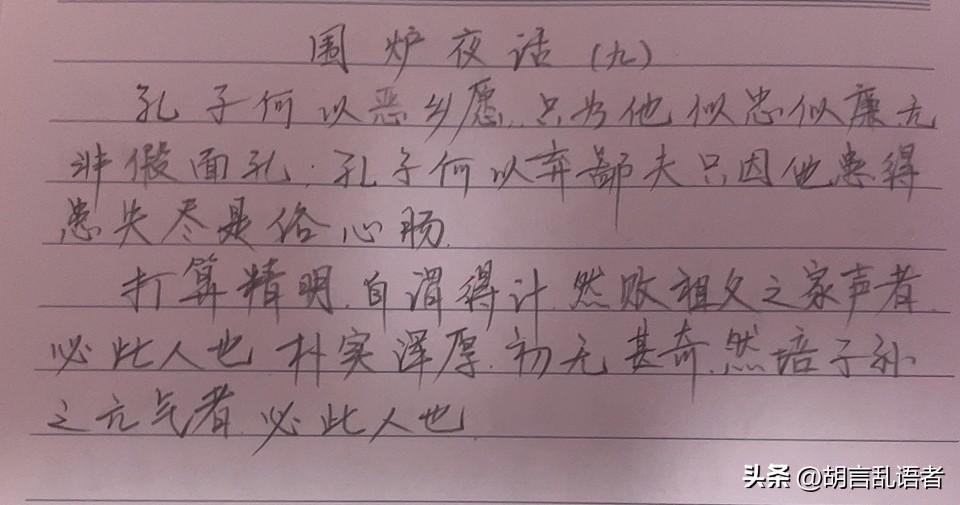 围炉夜话(九)
孔子何以恶乡愿,只为他似忠似廉无
非假面孔.孔子何以弃鄙夫只因他患得
患失尽是俗心肠.
打算精明.自谓得计.然败祖父之家声者.
必此人也 朴实浑厚.初无甚奇.然培子孙
之元气者.必此人也
头条 @胡言乱语者